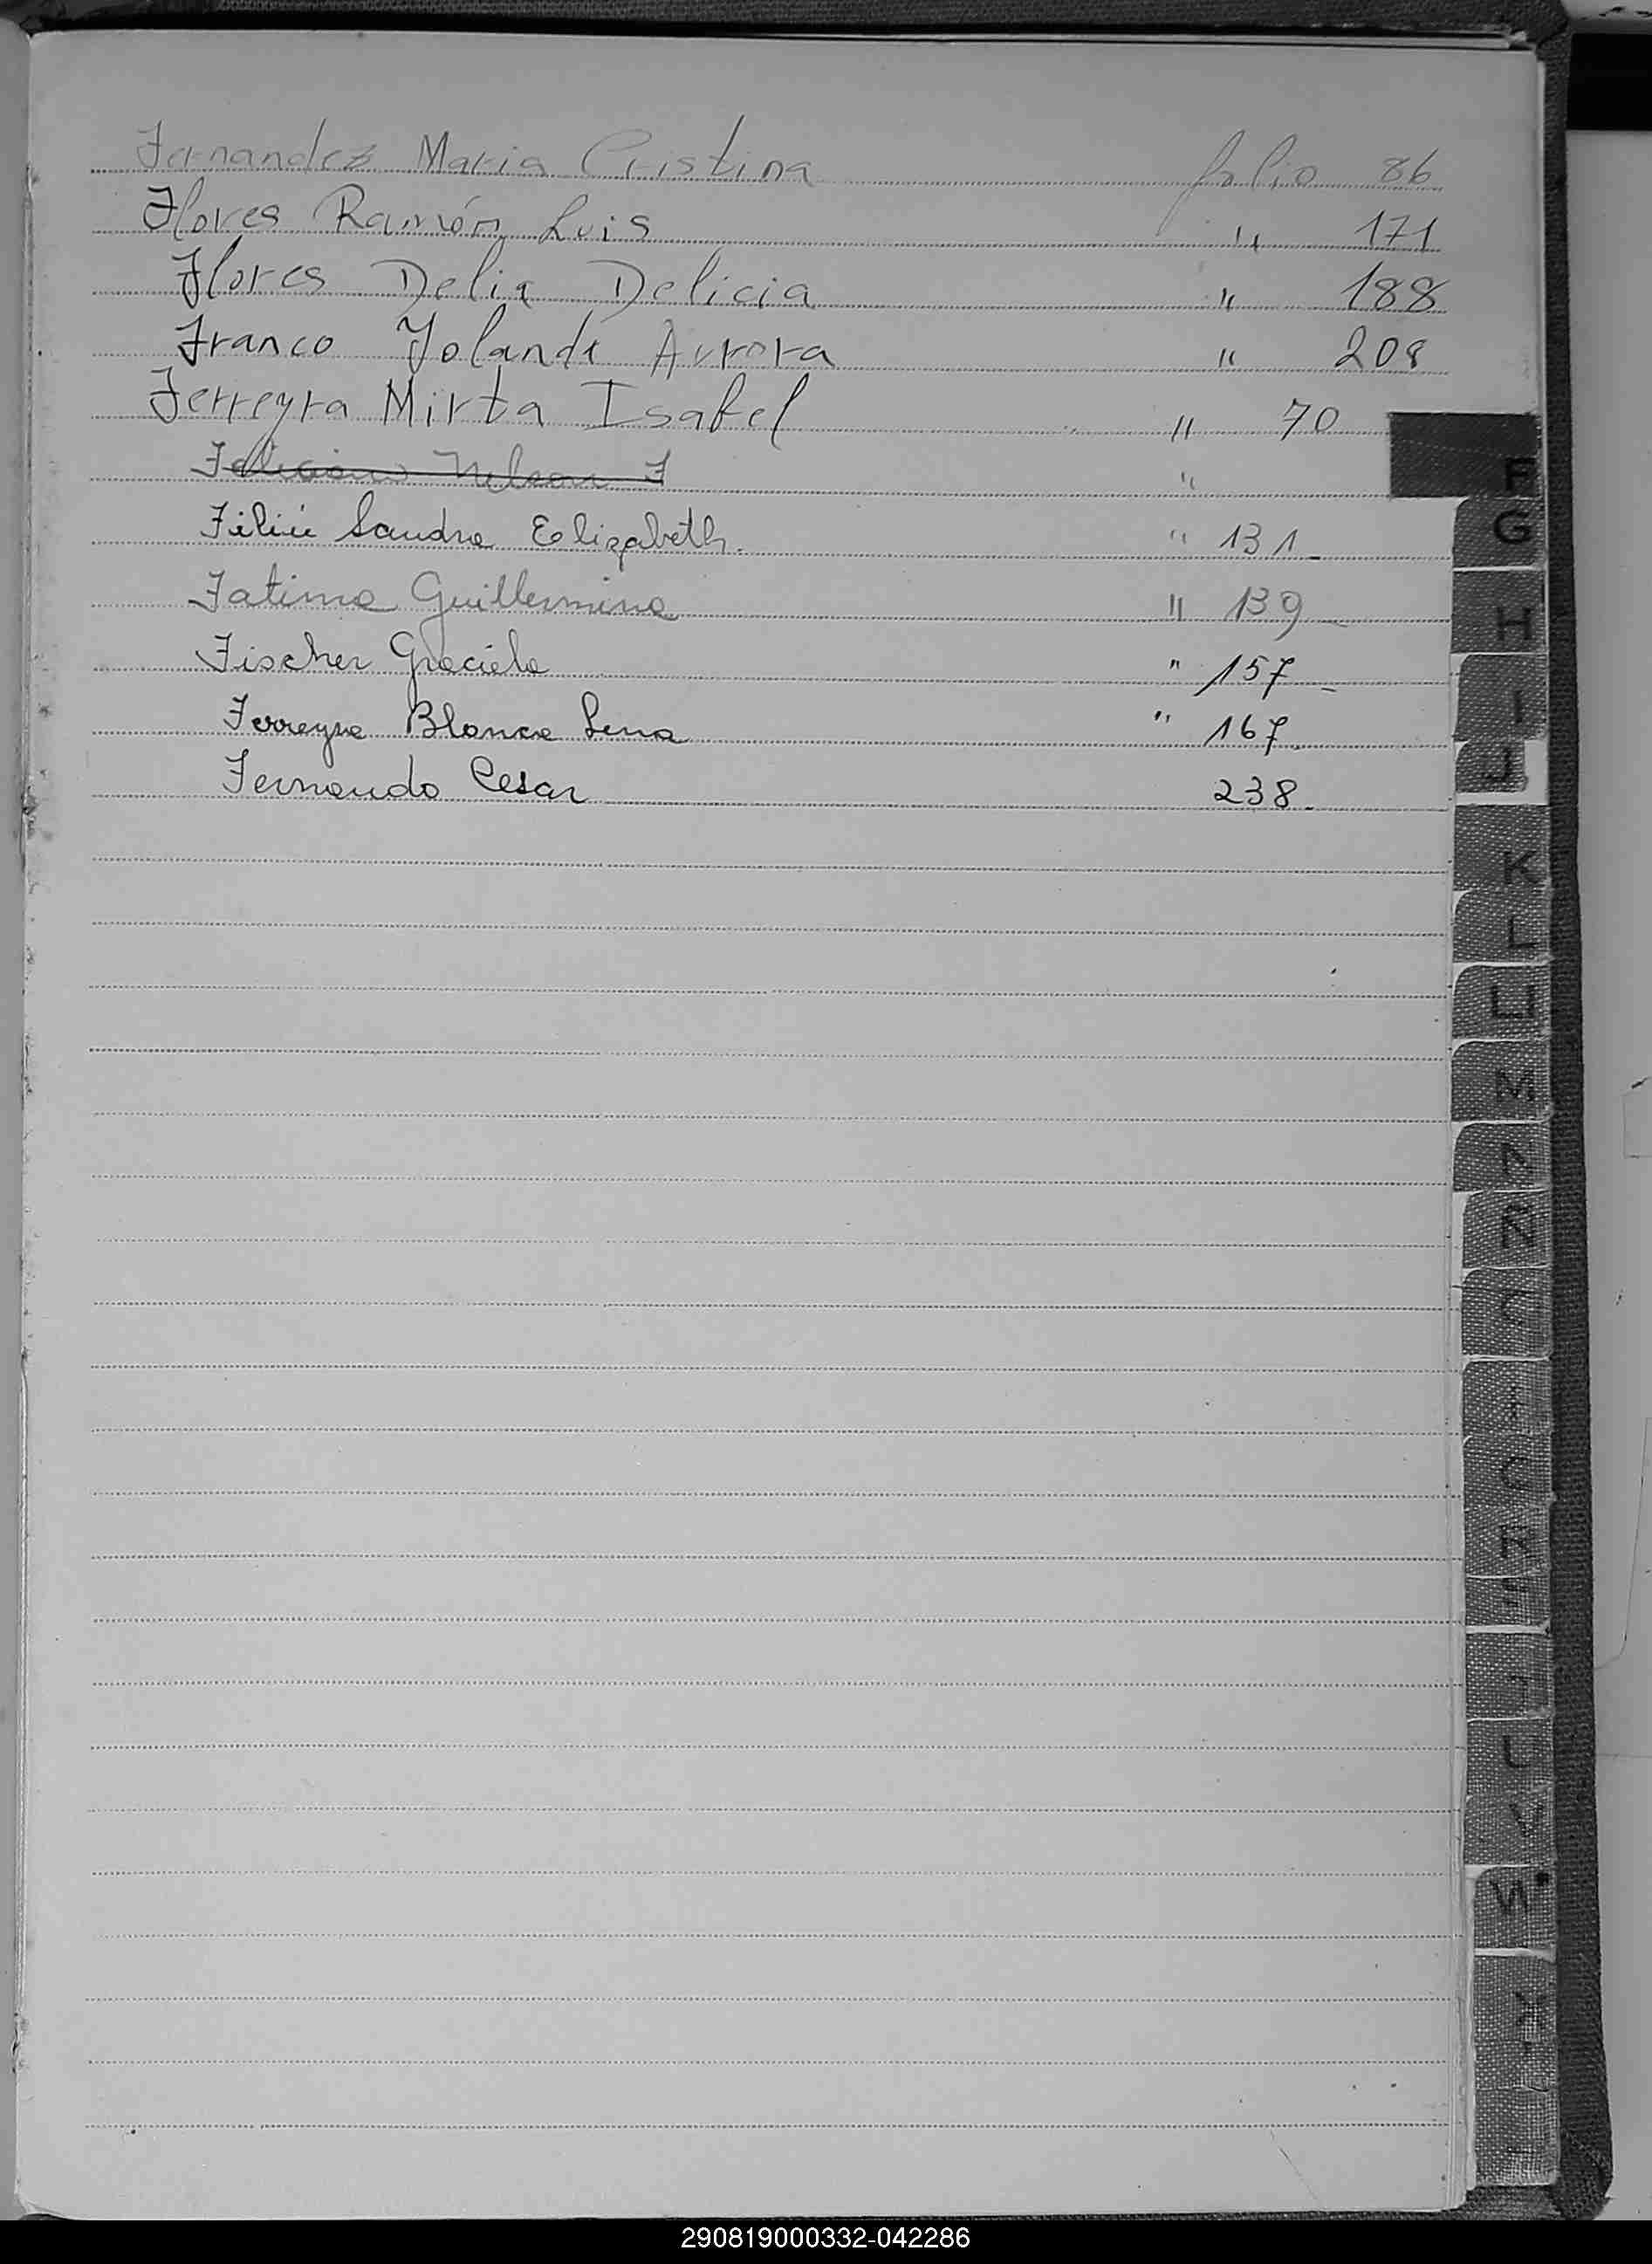 Fernandez Maria Cristina folio 86
Flores Ramón Luis " 171
Flores Delia Delicia " 188
Franco Yolanda Aurora " 208
Ferreyra Mirta Isabel " 70
Nelson F "
Sandra Elizabeth. " 131-
Fatima Guillermina " 139-
Fischer Graciela " 157-
Ferreyra Blanca Lena " 167-
Fernando Cesar 238-
F
G
H
I
J
K
L
LL
M
N
Ñ
R
U
V
W
X
290819000332-042286